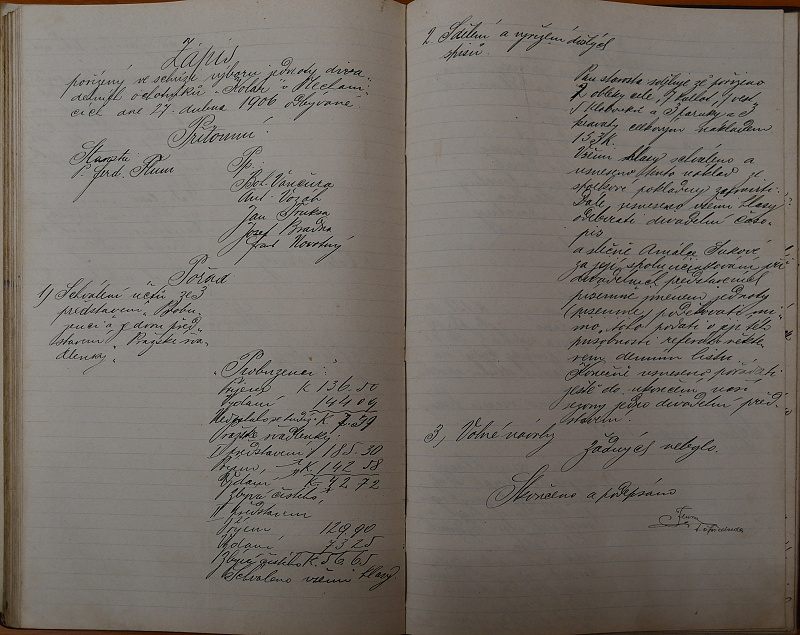 Zápis
pořízený ve schůzi výboru jednoty diva-
delních ochotníků „Kolár“ v Nechani-
cích dne 27. dubna 1906 odbývané.
Přítomni:
Starosta
P. Ferd. Flum
Pp:
Boh. Vančura
Ant. Vozáb
Jan Truksa
Josef Hradka
Karel Novotný
Pořad
1) Schválení účtů ze 3
představení „Probu-
zenci“ a z dvou před-
stavení „Pražské šva-
dlenky“.
„Probuzenci“:
Příjem K 136.50
Vydání 144 09
Nedostalo se tudíž K 7.59
Pražské švadlenky:
I představení 185 30
K 142 58
K 42 72
Zbývá čistého
II představení
Příjem 129,90
Vydání 73 25
Zbývá čistého K. 56.65
Schváleno všemi hlasy
2. Sdělení a vyřízení došlých
spisů.
Pan starosta sděluje že pořízeno
2 obleky celé, 7 kalhot, 7 vest,
5 klobouků a 3 paruky a 3
kravaty celkovým nákladem
153 K.
Všemi hlasy schváleno a
usneseno tento náklad ze
spolkové pokladny zapraviti.
Dále usneseno všemi hlasy
odebírati divadelní časo-
pis
a slečně Amálii
za její spoluúčinkování při
divadelních představeních
písemně jménem jednoty
(písemně) poděkovati mi-
mo toho podati o její
působnosti referát někte-
rém denním listu.
Konečně usneseno pořádati
ještě do ukončení naší
sezony jedno divadelní před-
stavení.
3, Volné návrhy
žádných nebylo.
Skončeno a podepsáno
Flum